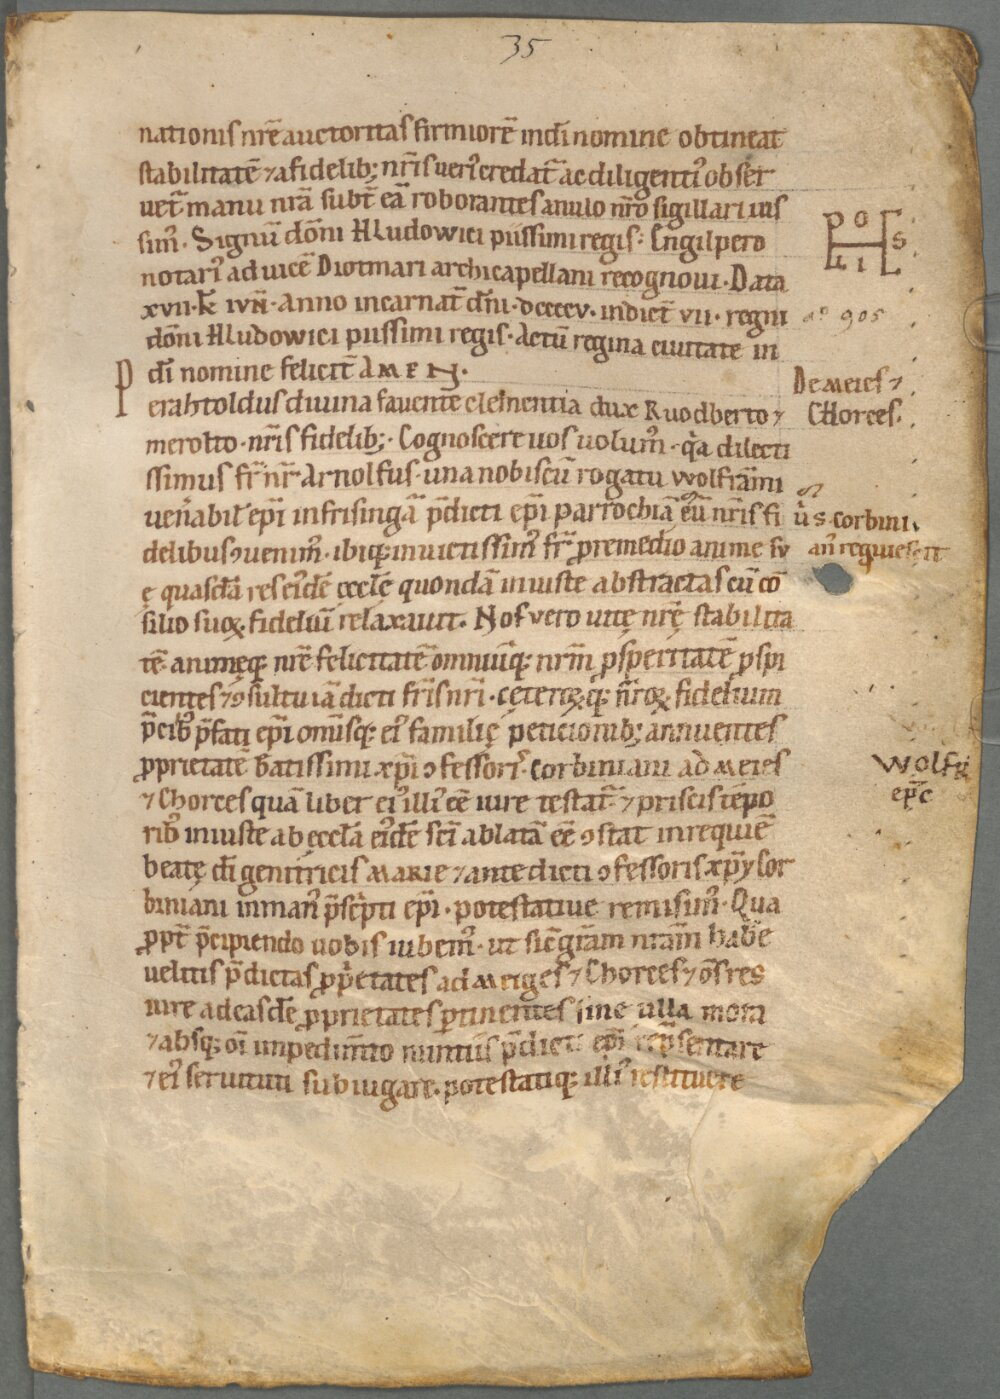 35
nationis nr̄e auctoritas firmiorē in dī nomine obtineat
stabilitatē ⁊ a fidelib; nr̄is veriꝰ credat̄ ac diligentiꝰ obser
uet̄ manu nr̄a subt̄ eā roborantes anulo nr̄o sigillari ius
simꝰ. Signū dōni Hludowici piissimi regis: Engilpero
notariꝰ ad vicē Diotmari archicapellani recognoui. Data
xvii. k̄ ivn̄. Anno incarnat̄ dn̄i. dcccc v. indict̄ vii. regni
dōni Hludowici piissimi regis. Actū regina ciuitate in
dī nomine felicit̄ AMEN.
Perahtoldus diuina fauente clementia dux Ruodberto ⁊
merolto. nr̄is fidelib;. Cognoscere uos uolumꝰ. q̄a dilecti
ssimus fr̄ nr̄ Arnolfus. una nobiscū rogatu wolframni
uen̄abil̄ ep̄i in frisingā p̄dicti ep̄i parrochiā cū nr̄is fi
delibus ꝯuenimꝰ. ibiq; inuictissimꝰ fr̄ pro remedio anime su
ę quasdā res eidē ecclę quondā iniuste abstractas cū cō
silio suoꝝ fidelium relaxauit. Nos vero uitę nr̄ę stabilita
tē. animęq; nr̄e felicitatē omniūq; nr̄m ꝓsperitatē ꝓspi
cientes ⁊ ꝯsultu iā dicti fr̄is nr̄i. cęteroꝝq; nr̄oꝝ. fidelium
p̄cibꝰ p̄fati ep̄i omīsq; eiꝰ familię peticionib; annuentes
ꝓprietatē b̄atissimi xp̄i ꝯfessoriſ. Corbiniani ad Meies
⁊ Chorces quā liber eiꝰ illiꝰ cē iure testat̄ ⁊ priscis tēpo
ribꝰ iniuste ab eccła eidē sc̄i ablatā eē ꝯstat in requiē
beatę dī genitricis MARIE ⁊ ante dicti ꝯfessoris xp̄i cor
biniani in manꝰ p̄sc̄pti ep̄i. potestatiue remisimꝰ. Qua
ꝓpt̄ p̄cipiendo uobis iubemꝰ. ut sic gr̄am nr̄am habē
uelitis p̄dictas ꝓp̄etates ad Meiges ⁊ Chorces ⁊ om̄s res
iure ad easdē ꝓprietates ꝑtinentes sine ulla mora
⁊ absq; oī inpedimn̄to nuntiis p̄dicti ep̄i rep̄sentare
⁊ eiꝰ seruituti subiugare. potestatiq; illiꝰ restituere
P O S
L I S
aº 905
De Meies ⁊
Chorces.
us. corbini
anꝰ requiescit
Wolfr̄
ep̄c